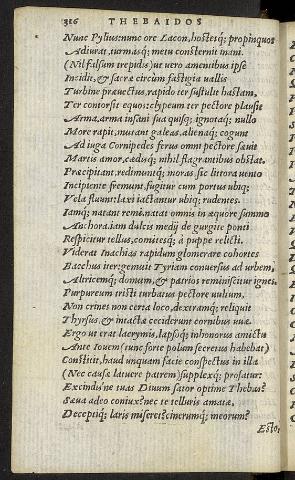 316 THEBAIDOS
Nunc Pylius: nunc ore Lacon, hostesq́; propinquos
Adiurat, turmasq́; metu consternit inani.
(Nil falsum trepidis) ut uero amentibus ipse
Incidit, & sacræ circùm fastigia uallis
Turbine præuectus, rapido ter sustulit hastam,
Ter contorsit equos: clypeum ter pectore plausit
Arma, arma insani sua quisq́; ignotaq́; nullo
More rapit, mutant galeas, alienaq́; cogunt
Ad iuga Cornipedes. ferus omni pectore sæuit
Martis amor, cædisq́; nihil flagrantibus obstat.
Præcipitant, redimuntq́; moras. sic littora uento
Incipiente fremunt, fugitur cum portus ubiq́;
Vela fluunt: laxi iactantur ubiq́; rudentes.
Iamq́; natant remi, natat omnis in æquore summo
Anchora. iam dulcis medij de gurgite ponti
Respicitur tellus, comitesq́; a puppe relicti.
Viderat Inachias rapidum glomerare cohortes
Bacchus iter: gemuit Tyriam conuersus ad urbem,
Altricemq́; domum, & patrios reminiscitur ignes,
Purpureum tristi turbatus pectore uultum.
Non crines non certa loco, dextramq́; reliquit
Thyrsus, & intactæ ceciderunt cornibus uuæ.
Ergo ut erat lacrymis, lapsoq́; inhonorus amictu
Ante Iouem (tunc forte polum secretus habebat)
Constitit, haud unquam facie conspectus in illa
(Nec causæ latuere patrem) supplexq́; profatur:
Excindisne tuas Diuum sator optime Thebas?
Sæua adeo coniux? nec te telluris amatæ,
Deceptiq́; laris miseret? cinerumq́; meorum?
Esto,